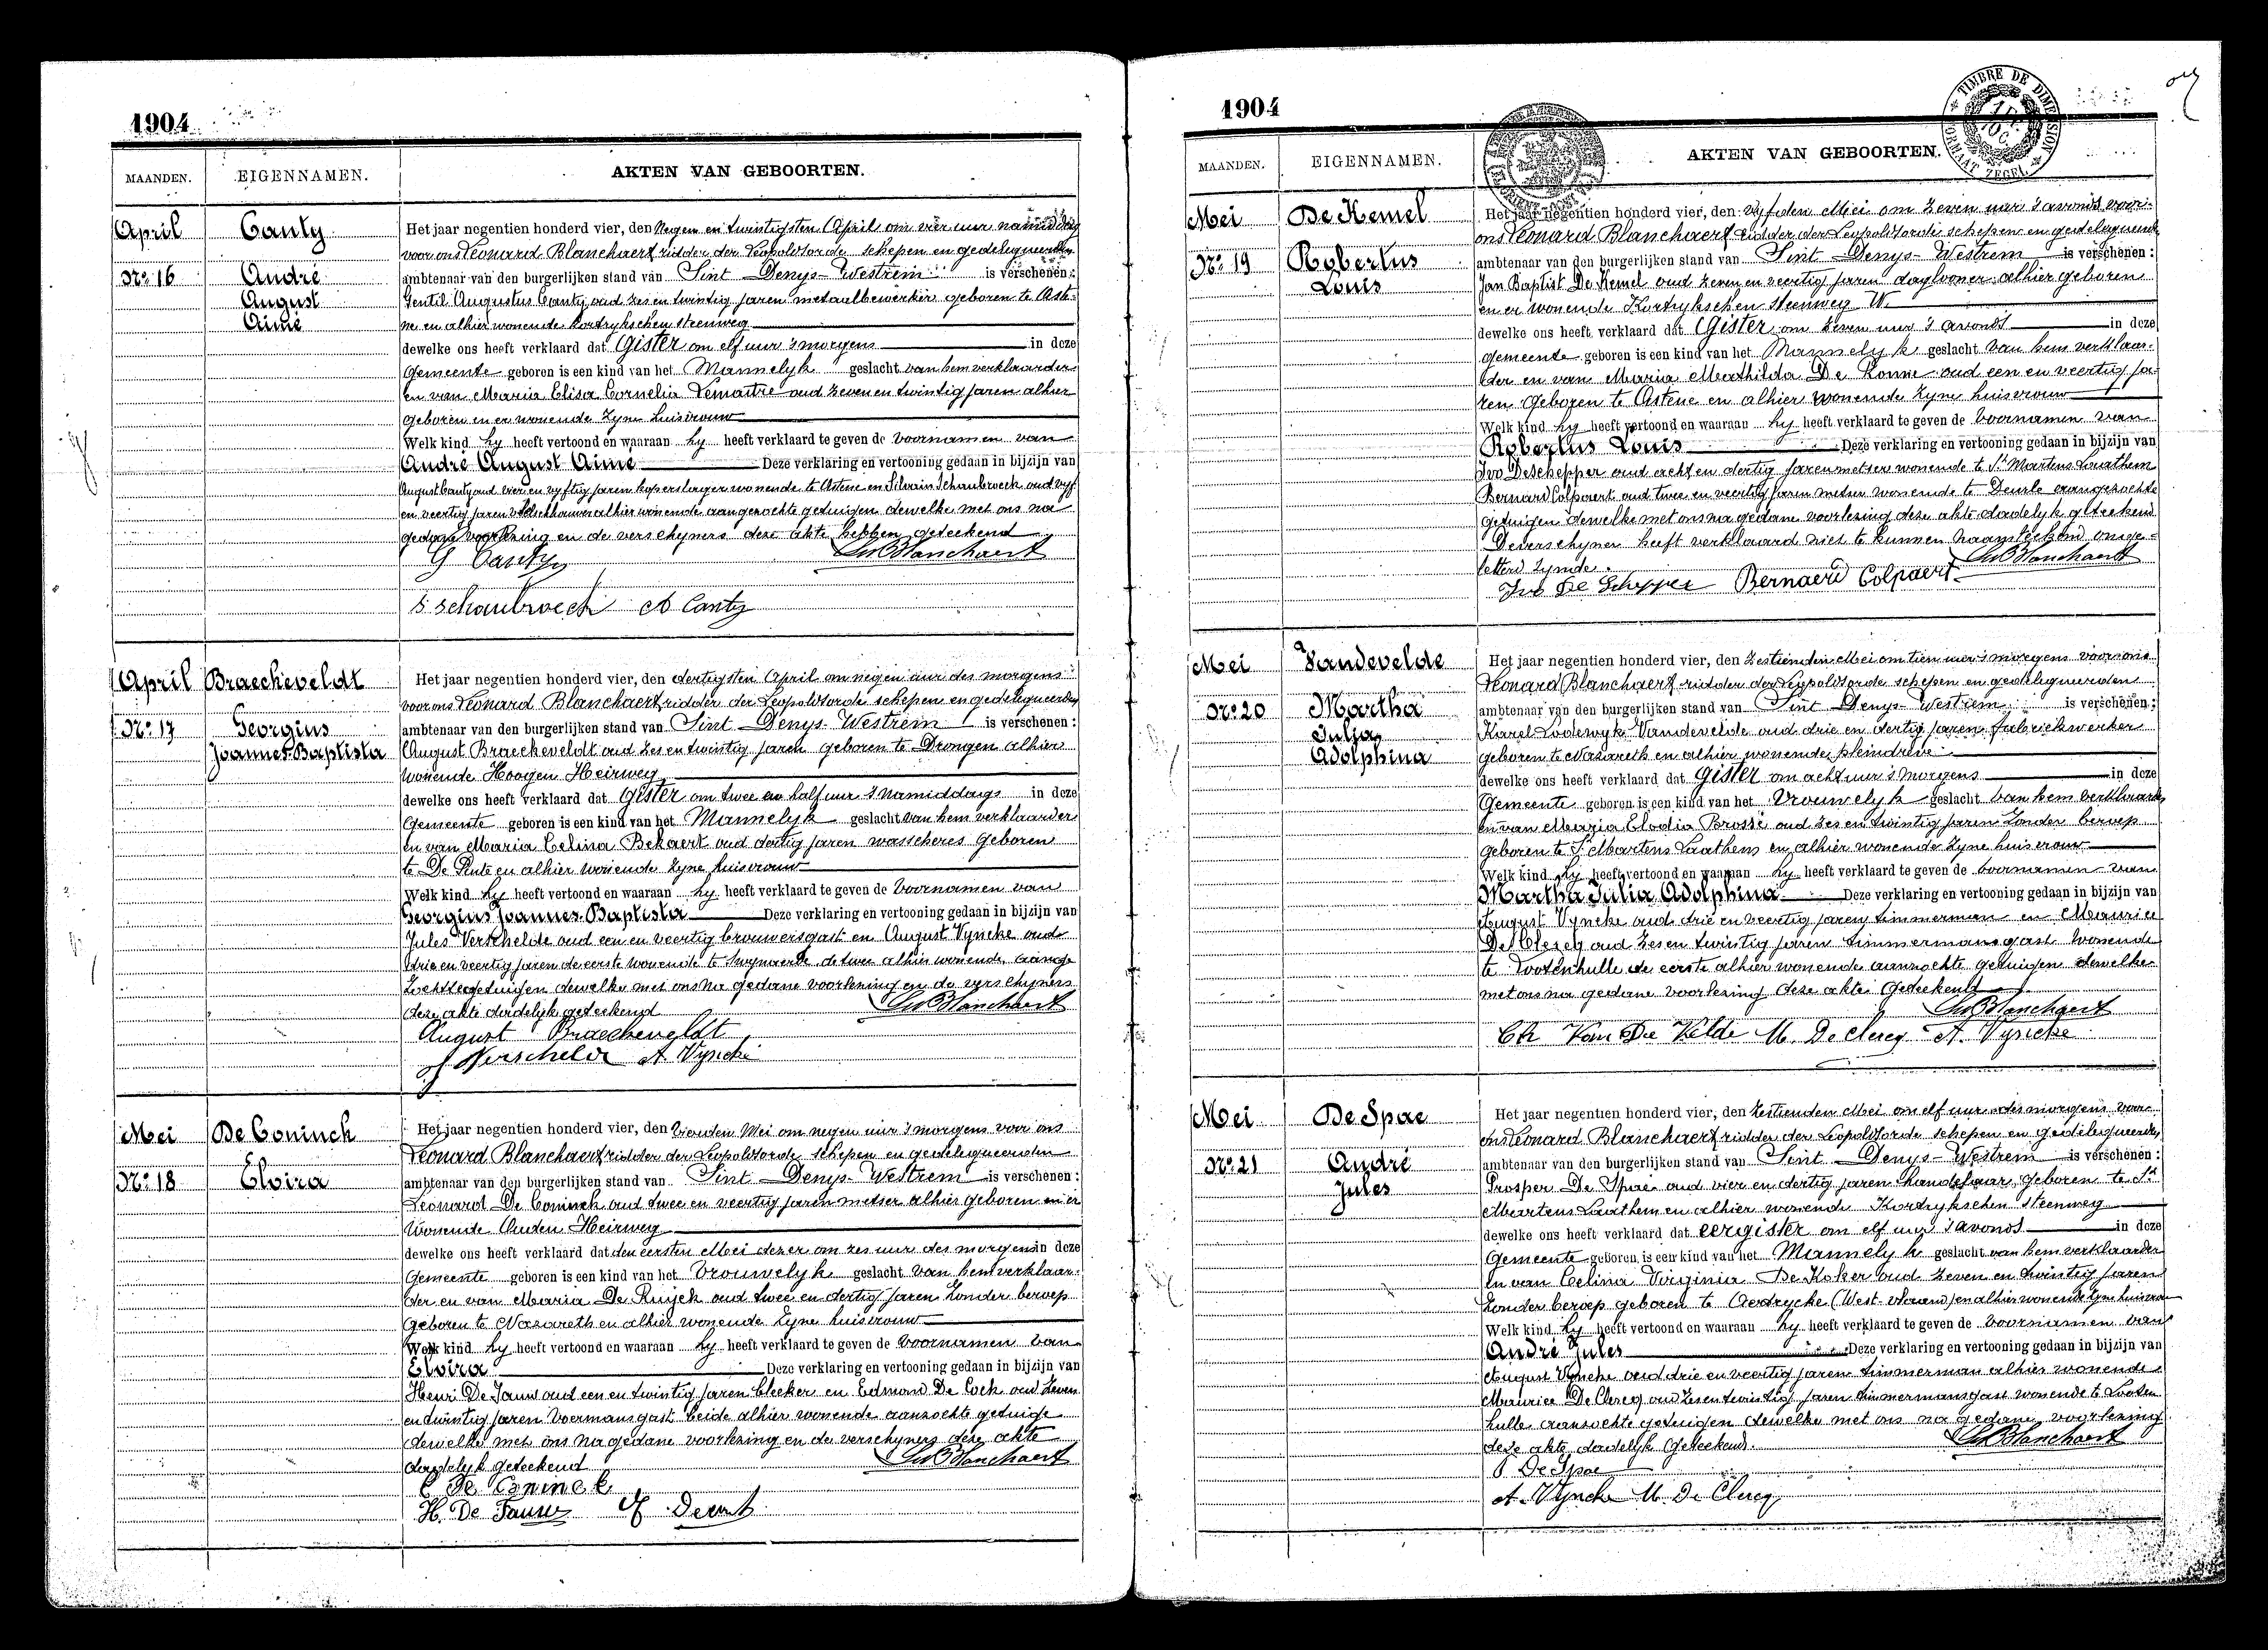 1904
MAANDEN. EIGENNAMEN. AKTEN VAN GEBOORTEN.
April Canty Het jaar negentien honderd vier, den Negen en twintigsten April om vier uur namiddag
voor ons Leonard Blanchaert ridder der Leopoldsorde schepen en gedelegueerden
No 16 André ambtenaar van den burgerlijken stand van Sint Denys-Westrem is verschenen:
August Gentil Augustus Canty oud zes en twintig jaren metaalbewerker geboren te Aste-
Aimé ne en alhier wonende Kortrykschen steenweg
dewelke ons heeft verklaard dat Gister om elf uur 's morgens in deze
Gemeente geboren is een kind van het Mannelyk geslacht van hem verklaarder
en van Maria Elisa Cornelia Lemaitre oud zeven en twintig jaren alhier
geboren en er wonende zyne huisvrouw
Welk kind hy heeft vertoond en waaraan hy heeft verklaard te geven de voornamen van
André August Aimé Deze verklaring en vertooning gedaan in bijzijn van
August Canty oud vier en vyftig jaren koperslager wonende te Astene en Silvain Schaubroeck oud vyf
en veertig jaren alhier wonende aangezochte getuigen dewelke met ons na
gedane voorlezing en de verschyners deze akte hebben geteekend
G Canty Leo Blanchaert
S Schaubroeck A Canty
April Braecheveldt Het jaar negentien honderd vier, den dertigsten April om negen uur des morgens
voor ons Leonard Blanchaert ridder der Leopoldsorde schepen en gedelegueerden
No 17 Georgius ambtenaar van den burgerlijken stand van Sint Denys-Westrem is verschenen:
Joannes-Baptista August Braecheveldt oud zes en twintig jaren geboren te Drongen alhier
wonende Hoogen Heirweg
dewelke ons heeft verklaard dat Gister om twee en half uur 's namiddags in deze
Gemeente geboren is een kind van het Mannelyk geslacht van hem verklaarder
en van Maria Celina Bekaert oud dertig jaren wasscheres geboren
te De Pinte en alhier wonende zyne huisvrouw
Welk kind hy heeft vertoond en waaraan hy heeft verklaard te geven de voornamen van
Georgius Joannes-Baptista Deze verklaring en vertooning gedaan in bijzijn van
Jules Verschelde oud een en veertig brouwersgast en August Vyncke oud
drie en veertig jaren de eerste wonende te Swynaerde de twee alhier wonende aange
zochte getuigen dewelke met ons na gedane voorlezing en de verschyners
deze akte dadelyk geteekend Leo Blanchaert
August Braecheveldt
J Verschelde A. Vyncke
Mei De Coninck Het jaar negentien honderd vier, den vierden Mei om negen uur 's morgens voor ons
Leonard Blanchaert ridder der Leopoldsorde schepen en gedelegueerden
No 18 Elvira ambtenaar van den burgerlijken stand van Sint Denys-Westrem is verschenen:
Leonard De Coninck oud twee en veertig jaren metser alhier geboren en er
wonende Ouden Heirweg
dewelke ons heeft verklaard dat den eersten Mei dezer om zes uur des morgens in deze
Gemeente geboren is een kind van het Vrouwelyk geslacht van hem verklaar-
der en van Maria De Ruyck oud twee en dertig jaren zonder beroep
geboren te Nazareth en alhier wonende zyne huisvrouw
Welk kind hy heeft vertoond en waaraan hy heeft verklaard te geven de voornamen van
Elvira Deze verklaring en vertooning gedaan in bijzijn van
Henri De Jauw oud een en twintig jaren bleeker en Edmond De Cock oud zeven
en twintig jaren voermansgast beide alhier wonende aanzochte getuige
dewelke met ons na gedane voorlezing en de verschyners deze akte
dadelyk geteekend Leo Blanchaert
De Coninck
H. De Jauw
1904
TIMBRE DE DIMENSION
FORMAAT ZEGEL
MAANDEN. EIGENNAMEN. AKTEN VAN GEBOORTEN.
Mei De Kemel Het jaar negentien honderd vier, den vyfden Mei om zeven uur 's avonds voor
ons Leonard Blanchaert ridder der Leopoldsorde schepen en gedelegueerde
No 19 Robertus ambtenaar van den burgerlijken stand van Sint Denys-Westrem is verschenen:
Louis Jan Baptist De Kemel oud zeven en veertig jaren daglooner alhier geboren
en er wonende Kortrykschen steenweg W.
dewelke ons heeft verklaard dat Gister om zeven uur 's avonds in deze
gemeente geboren is een kind van het Mannelyk geslacht van hem verklaar-
der en van Maria Mathilda De Konne oud een en veertig ja-
ren geboren te Astene en alhier wonende zyne huisvrouw
Welk kind hy heeft vertoond en waaraan hy heeft verklaard te geven de voornamen van
Robertus Louis Deze verklaring en vertooning gedaan in bijzijn van
Ivo Deschepper oud acht en dertig jaren metser wonende te St Martens Laathem
Bernard Colpaert oud twee en veertig jaren metser wonende te Deurle aangezochte
getuigen dewelke met ons na gedane voorlezing deze akte dadelyk geteekend
De verschyner heeft verklaard niet te kunnen naamteekend onge-
letterd zynde. Leo Blanchaert
Ivo De Schepper Bernaerd Colpaert
Mei Vandevelde Het jaar negentien honderd vier, den zestienden Mei om tien uur 's morgens voor ons
Leonard Blanchaert ridder der Leopoldsorde schepen en gedelegueerden
No 20 Martha ambtenaar van den burgerlijken stand van Sint Denys-Westrem is verschenen:
Julia Karel Lodewyk Vandevelde oud drie en dertig jaren fabriekwerker
Adolphina geboren te Nazareth en alhier wonende pleindreve
dewelke ons heeft verklaard dat Gister om acht uur 's morgens in deze
Gemeente geboren is een kind van het Vrouwelyk geslacht van hem verklaarder
en van Maria Elodia Brossé oud zes en twintig jaren zonder beroep
geboren te St Martens Laathem en alhier wonende zyne huisvrouw
Welk kind hy heeft vertoond en waaraan hy heeft verklaard te geven de voornamen van
Martha Julia Adolphina Deze verklaring en vertooning gedaan in bijzijn van
August Vyncke oud drie en veertig jaren timmerman en Maurice
De Clercq oud zes en twintig jaren timmermansgast wonende
te Lootenhulle de eerste alhier wonende aanzochte getuigen dewelke
met ons na gedane voorlezing deze akte geteekend
Leo Blanchaert
Ch Van De Velde M. De Clercq A. Vyncke
Mei De Spae Het jaar negentien honderd vier, den zestienden Mei om elf uur des morgens voor
ons Leonard Blanchaert ridder der Leopoldsorde schepen en gedelegueerden
No 21 André ambtenaar van den burgerlijken stand van Sint Denys-Westrem is verschenen:
Jules Prosper De Spae oud vier en dertig jaren handelaar geboren te St
Martens Laathem en alhier wonende Kortrykschen steenweg
dewelke ons heeft verklaard dat eergister om elf uur 's avonds in deze
Gemeente geboren is een kind van het Mannelyk geslacht van hem verklaarder
en van Celina Virginia De Koker oud zeven en twintig jaren
zonder beroep geboren te Aertrycke (West-vlaand) en alhier wonende zyne huisvrouw
Welk kind hy heeft vertoond en waaraan hy heeft verklaard te geven de voornamen van
André Jules Deze verklaring en vertooning gedaan in bijzijn van
August Vyncke oud drie en veertig jaren timmerman alhier wonende
Maurice De Clercq oud zes en twintig jaren timmermansgast wonende te Looten
hulle aanzochte getuigen dewelke met ons na gedane voorlezing
deze akte dadelyk geteekend. Leo Blanchaert
P De Spae
A. Vyncke M. De Clercq